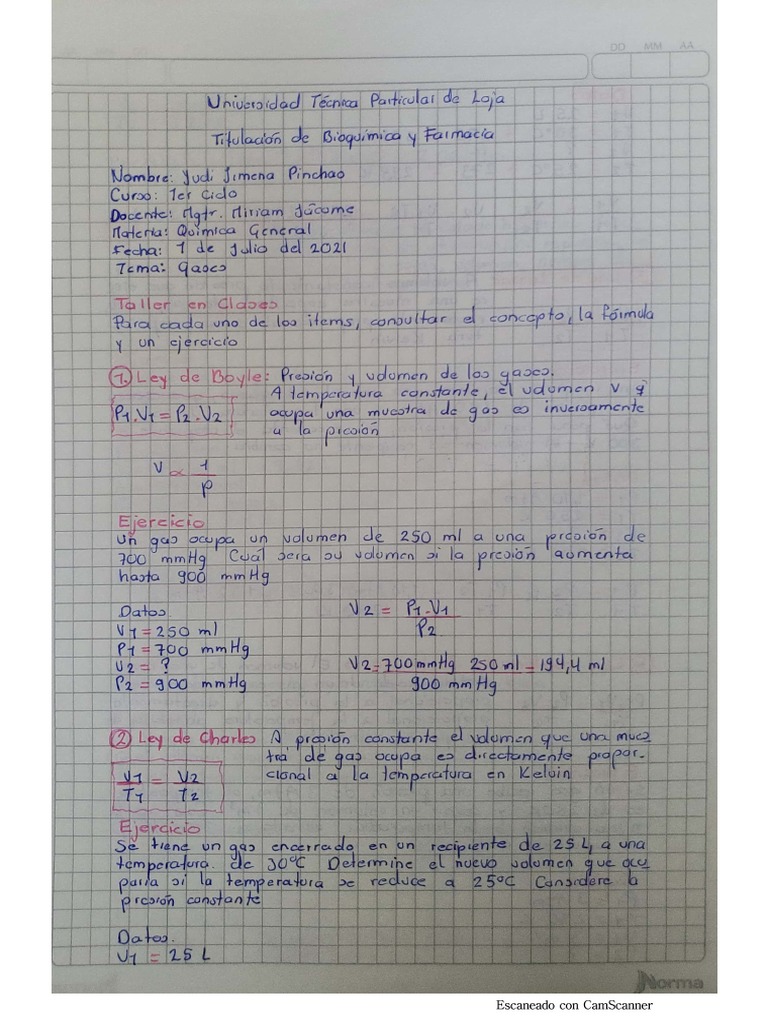 DD MM AA
Universidad Técnica Particular de Loja
Titulación de Bioquímica y Farmacia
Nombre: Yudi Jimena Pinchao
Curso: 1er Ciclo
Docente: Mgtr. Miriam Jácome
Materia: Química General
Fecha: 1 de Julio del 2021
Tema: Gases
Taller en Clases
Para cada uno de los items, consultar el concepto, la fórmula
y un ejercicio
1. Ley de Boyle: Presión y volumen de los gases.
A temperatura constante, el volumen V q
P1.V1 = P2.V2
ocupa una muestra de gas es inversamente
a la presión
V ∝ 1/P
Ejercicio
Un gas ocupa un volumen de 250 ml a una presión de
700 mmHg Cuál sera su volumen si la presión aumenta
hasta 900 mmHg
Datos
V1 = 250 ml
P1 = 700 mmHg
V2 = ?
P2 = 900 mmHg
V2 = P1.V1 / P2
V2 = 700 mmHg 250 ml / 900 mmHg = 194,4 ml
2 Ley de Charles A presión constante el volumen que una mues
tra de gas ocupa es directamente propor.
cional a la temperatura en Kelvin
V1/T1 = V2/T2
Ejercicio
Se tiene un gas encerrado en un recipiente de 25 L, a una
temperatura. de 30°C Determine el nuevo volumen que ocu
paria si la temperatura se reduce a 25°C Considere la
presión constante
Datos.
V1 = 25 L
Norma
Escaneado con CamScanner